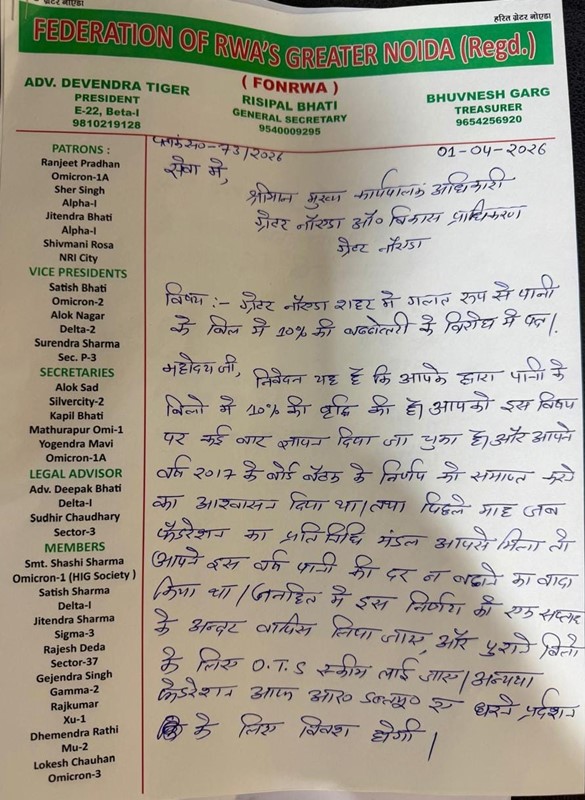 ग्रेटर नोएडा
हरित ग्रेटर नोएडा
FEDERATION OF RWA'S GREATER NOIDA (Regd.)
( FONRWA )
ADV. DEVENDRA TIGER
PRESIDENT
E-22, Beta-I
9810219128
RISIPAL BHATI
GENERAL SECRETARY
9540009295
BHUVNESH GARG
TREASURER
9654256920
PATRONS :
Ranjeet Pradhan
Omicron-1A
Sher Singh
Alpha-I
Jitendra Bhati
Alpha-I
Shivmani Rosa
NRI City
VICE PRESIDENTS
Satish Bhati
Omicron-2
Alok Nagar
Delta-2
Surendra Sharma
Sec. P-3
SECRETARIES
Alok Sad
Silvercity-2
Kapil Bhati
Mathurapur Omi-1
Yogendra Mavi
Omicron-1A
LEGAL ADVISOR
Adv. Deepak Bhati
Delta-I
Sudhir Chaudhary
Sector-3
MEMBERS
Smt. Shashi Sharma
Omicron-1 (HIG Society )
Satish Sharma
Delta-I
Jitendra Sharma
Sigma-3
Rajesh Deda
Sector-37
Gejendra Singh
Gamma-2
Rajkumar
Xu-1
Dhmendra Rathi
Mu-2
Lokesh Chauhan
Omicron-3
पत्रांक सं०-73/2026
01-04-2026
सेवा में,
श्रीमान मुख्य कार्यपालक अधिकारी
ग्रेटर नॉएडा औ० विकास प्राधिकरण
ग्रेटर नॉएडा
विषय :- ग्रेटर नॉएडा शहर में गलत रूप से पानी
के बिल में 10% की बढ़ोत्तरी के विरोध में पत्र।
महोदय जी,
निवेदन यह है कि आपके द्वारा पानी के
बिलों में 10% की वृद्धि की है। आपको इस विषय
पर कई बार ज्ञापन दिया जा चुका है। और आपने
वर्ष 2017 के बोर्ड बैठक के निर्णय को समाप्त करने
का आश्वासन दिया था। तथा पिछले माह जब
फेडरेशन का प्रतिनिधि मंडल आपसे मिला तो
आपने इस वर्ष पानी की दर न बढ़ाने का वादा
किया था। जनहित में इस निर्णय को एक सप्ताह
के अन्दर वापिस लिया जाए, और पुराने बिलों
के लिए O.T.S स्कीम लाई जाए। अन्यथा
फेडरेशन आफ आर० डब्लू० ए धरने प्रर्दशन
के लिए विवश होगी।